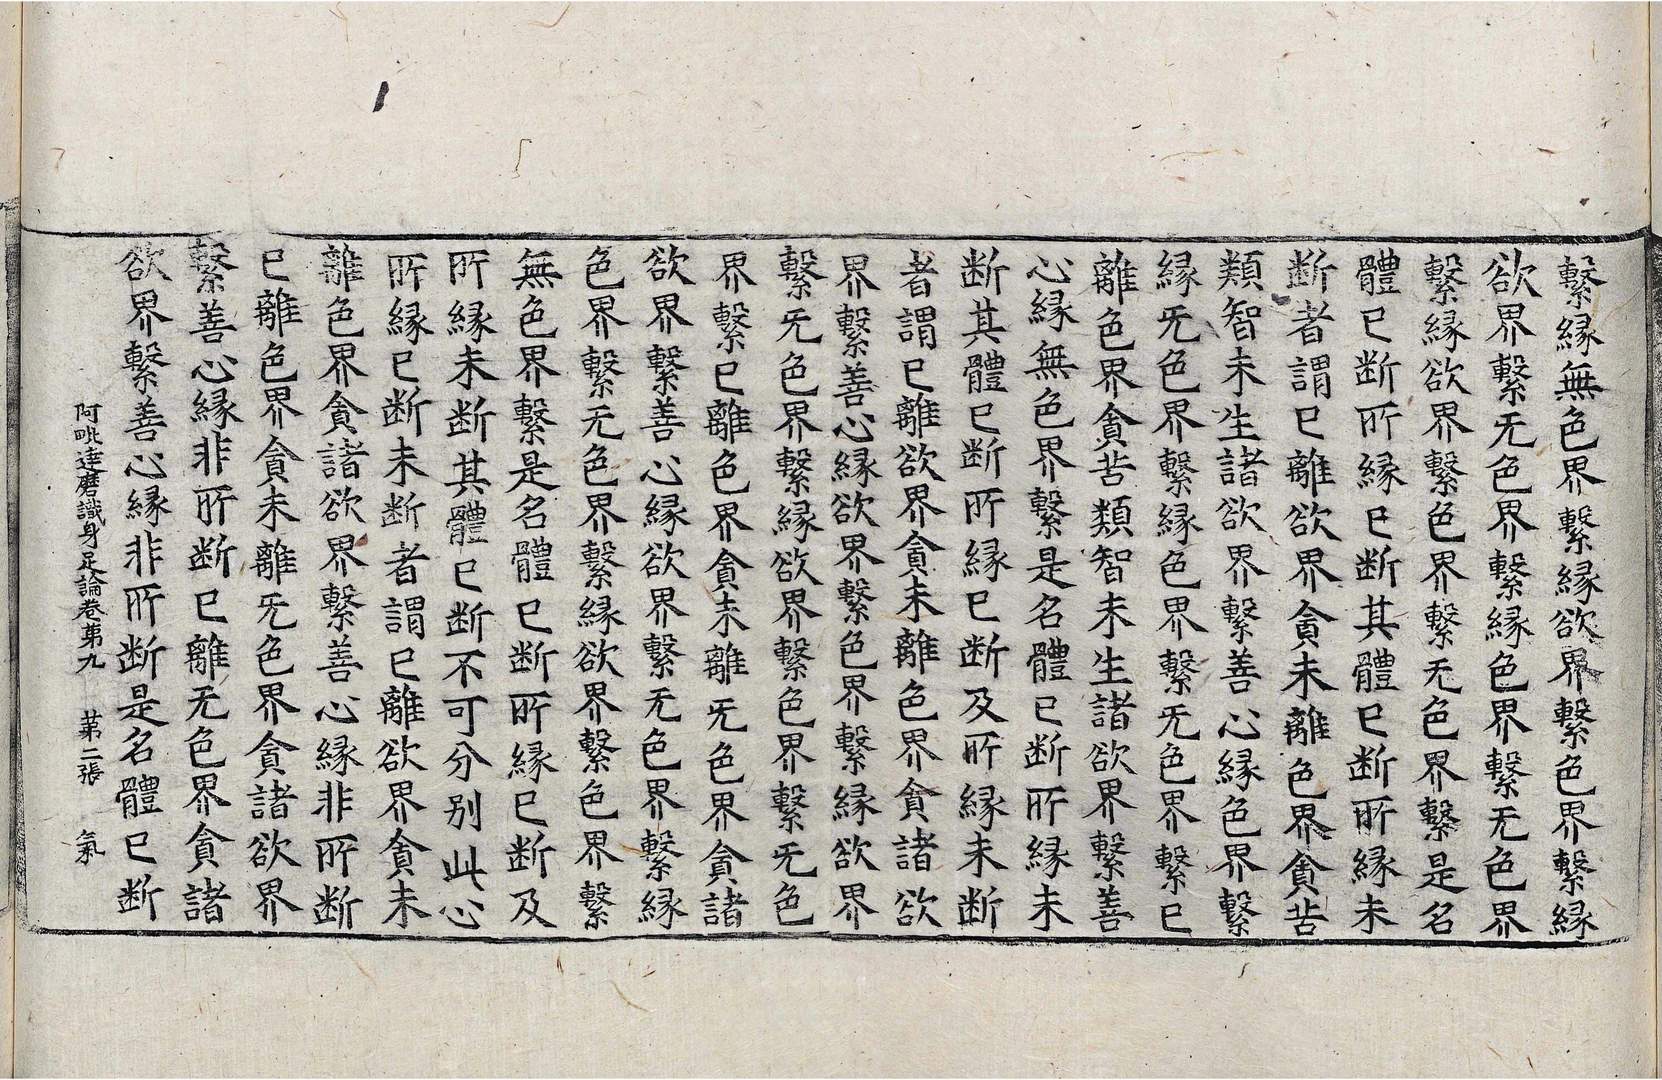 繫縁無色界繫縁欲界繫色界繫縁
欲界繫无色界繫縁色界繫无色界
繫縁欲界繫色界繫无色界繫是名
體已断所縁已断其體已断所縁未
断者謂已離欲界貪未離色界貪苦
類智未生諸欲界繫善心縁色界繫
縁无色界繫縁色界繫无色界繫已
離色界貪苦類智未生諸欲界繫善
心縁無色界繫是名體已断所縁未
断其體已断所縁已断及所縁未断
者謂已離欲界貪未離色界貪諸欲
界繫善心縁欲界繫色界繫縁欲界
繫无色界繫縁欲界繫色界繫无色
界繫已離色界貪未離无色界貪諸
欲界繫善心縁欲界繫无色界繫縁
色界繫无色界繫縁欲界繫色界繫
無色界繫是名體已断所縁已断及
所縁未断其體已断不可分别此心
所縁已断未断者謂已離欲界貪未
離色界貪諸欲界繫善心縁非所断
已離色界貪未離无色界貪諸欲界
繫善心縁非所断已離无色界貪諸
欲界繫善心縁非所断是名體已断
阿毗達磨識身足論卷苐九 苐二張 氣